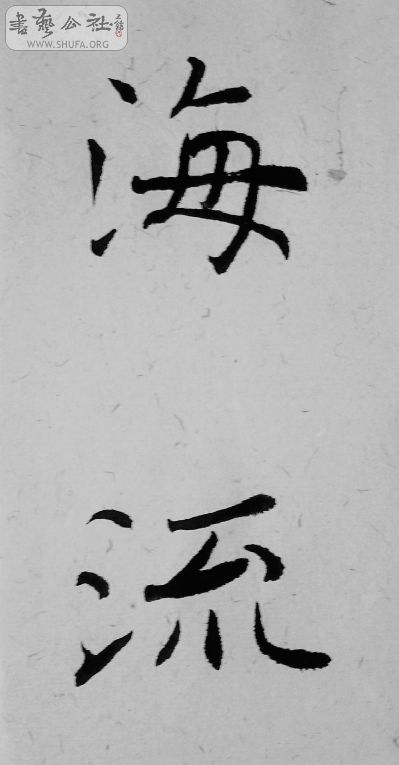 書藝公社
WWW.SHUFA.ORG
海
流